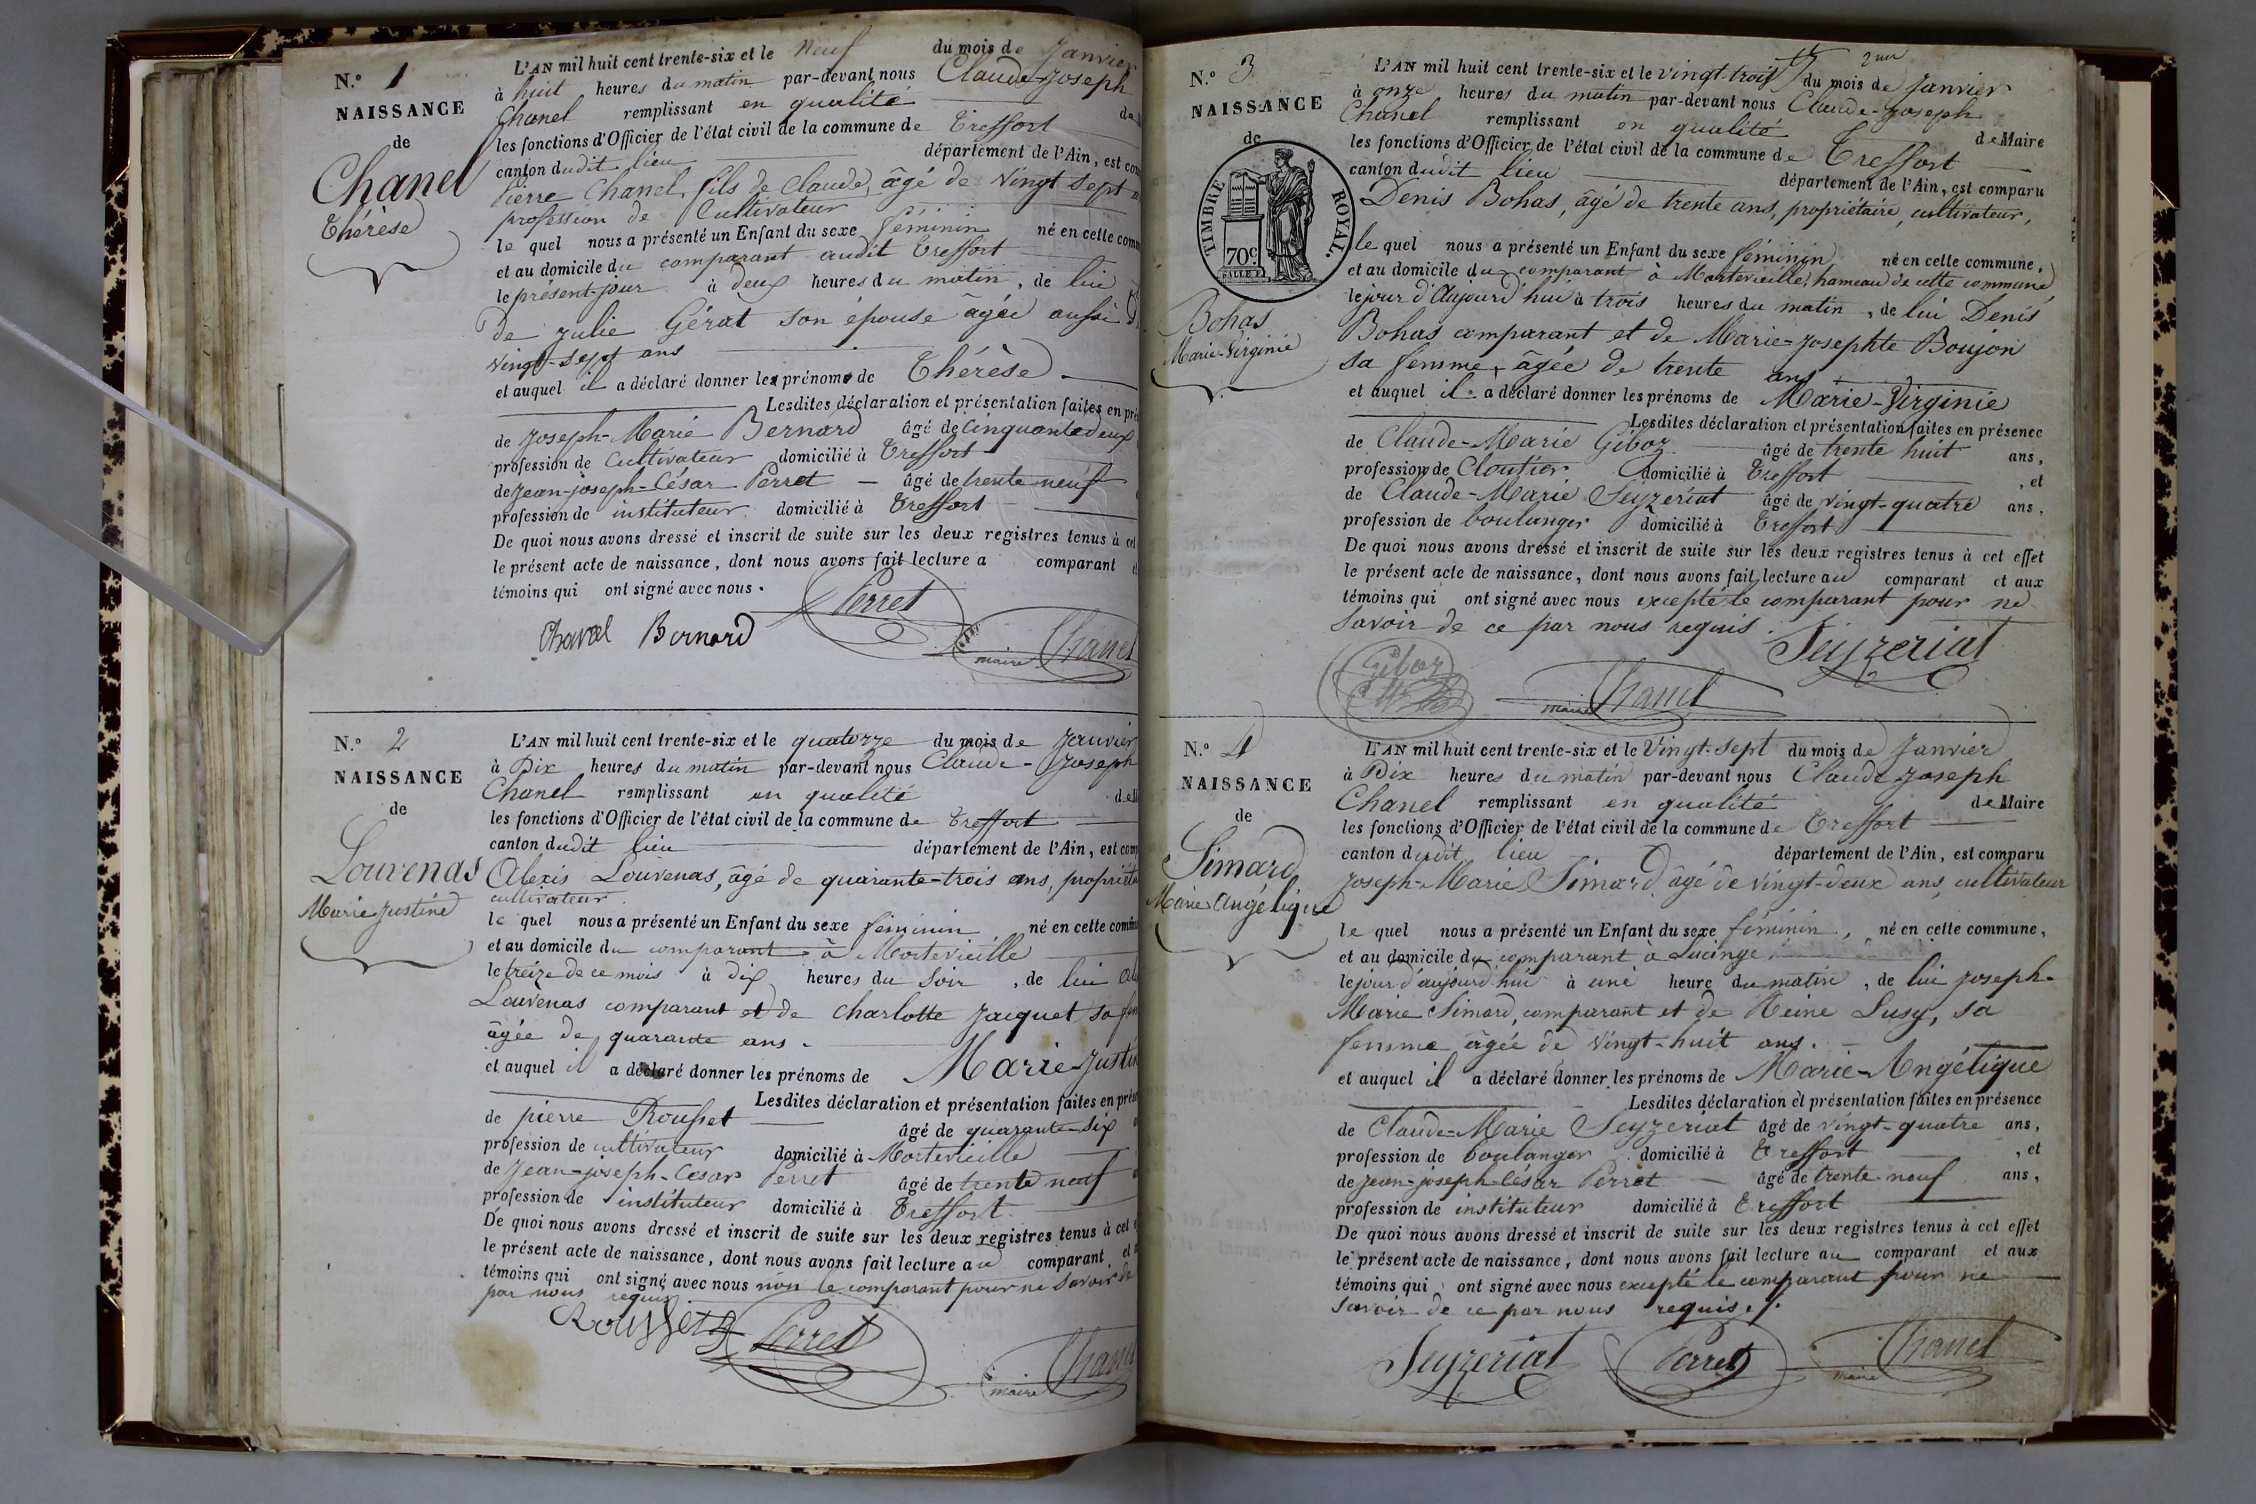 N.º 1
NAISSANCE
de
Chanel
Thérèse
L'AN mil huit cent trente-six et le neuf du mois de Janvier
à huit heures du matin par-devant nous Claude-Joseph
Chanel remplissant en qualité de
les fonctions d'Officier de l'état civil de la commune de Treffort
canton dudit lieu département de l'Ain, est com
Pierre Chanel, fils de Claude, âgé de vingt sept
profession de Cultivateur
le quel nous a présenté un Enfant du sexe féminin né en cette com
et au domicile du comparant audit Treffort
le présent jour à deux heures du matin, de lui
De Julie Gérat son épouse âgée aussi de
vingt-sept ans
et auquel il a déclaré donner les prénoms de Thérèse
Lesdites déclaration et présentation faites en pré
de Joseph-Marie Bernard âgé de cinquante deux
profession de Cultivateur domicilié à Treffort
de Jean-joseph-César Perret âgé de trente neuf
profession de instituteur domicilié à Treffort
De quoi nous avons dressé et inscrit de suite sur les deux registres tenus à cet
le présent acte de naissance, dont nous avons fait lecture a comparant et
témoins qui ont signé avec nous.
Perret
Bernard
maire Chanel
N.º 2
NAISSANCE
de
Louvenas
Marie-Justine
L'AN mil huit cent trente-six et le quatorze du mois de Janvier
à Dix heures du matin par-devant nous Claude-Joseph
Chanel remplissant en qualité de
les fonctions d'Officier de l'état civil de la commune de Treffort
canton dudit lieu département de l'Ain, est comp
Alexis Louvenas, âgé de quarante-trois ans, propriéta
cultivateur.
le quel nous a présenté un Enfant du sexe féminin né en cette commu
et au domicile du comparant à Mortevieille
le treize de ce mois à dix heures du soir, de lui Al
Louvenas comparant et de Charlotte Jacquet sa fem
âgée de quarante ans.
et auquel il a déclaré donner les prénoms de Marie-Justin
Lesdites déclaration et présentation faites en prés
de pierre Rousset âgé de quarante-six
profession de cultivateur domicilié à Mortevieille
de Jean-joseph-Cesar Perret âgé de trente neuf
profession de instituteur domicilié à Treffort
De quoi nous avons dressé et inscrit de suite sur les deux registres tenus à cet
le présent acte de naissance, dont nous avons fait lecture au comparant et
témoins qui ont signé avec nous non le comparant pour ne savoir de
par nous requis
Rousset Perret
maire Chanel
N.º 3
NAISSANCE
de
TIMBRE ROYAL.
70c.
Bohas
Marie-Virginie
L'AN mil huit cent trente-six et le vingt-trois du mois de Janvier
à onze heures du matin par-devant nous Claude-Joseph
Chanel remplissant en qualité de Maire
les fonctions d'Officier de l'état civil de la commune de Treffort
canton dudit lieu département de l'Ain, est comparu
Denis Bohas, âgé de trente ans, propriétaire, cultivateur,
le quel nous a présenté un Enfant du sexe féminin né en cette commune,
et au domicile du comparant à Mortevieille, hameau de cette commune
le jour d'Aujourd'hui à trois heures du matin, de lui Denis
Bohas comparant et de Marie-Josephte Boujon
sa femme, âgée de trente ans
et auquel il a déclaré donner les prénoms de Marie-Virginie
Lesdites déclaration et présentation faites en présence
de Claude-Marie Giboz âgé de trente huit ans,
profession de Cloutier domicilié à Treffort, et
de Claude-Marie Seyzeriat âgé de vingt-quatre ans,
profession de boulanger domicilié à Treffort
De quoi nous avons dressé et inscrit de suite sur les deux registres tenus à cet effet
le présent acte de naissance, dont nous avons fait lecture au comparant et aux
témoins qui ont signé avec nous excepté le comparant pour ne
savoir de ce par nous requis.
Seyzeriat
Giboz
maire Chanel
N.º 4
NAISSANCE
de
Simard
Marie Angélique
L'AN mil huit cent trente-six et le Vingt-sept du mois de Janvier
à Dix heures du matin par-devant nous Claude Joseph
Chanel remplissant en qualité de Maire
les fonctions d'Officier de l'état civil de la commune de Treffort
canton dudit lieu département de l'Ain, est comparu
Joseph-Marie Simard âgé de vingt-deux ans, cultivateur
le quel nous a présenté un Enfant du sexe féminin, né en cette commune,
et au domicile du comparant à Lucinge
le jour d'aujourd'hui à une heure du matin, de lui Joseph-
Marie Simard, comparant et de Reine Lusy, sa
femme âgée de vingt-huit ans.
et auquel il a déclaré donner les prénoms de Marie-Angélique
Lesdites déclaration et présentation faites en présence
de Claude-Marie Seyzériat âgé de vingt-quatre ans,
profession de boulanger domicilié à Treffort, et
de Jean-joseph-César Perret âgé de trente-neuf ans,
profession de instituteur domicilié à Treffort
De quoi nous avons dressé et inscrit de suite sur les deux registres tenus à cet effet
le présent acte de naissance, dont nous avons fait lecture au comparant et aux
témoins qui ont signé avec nous excepté le comparant pour ne
savoir de ce par nous requis.
Seyzeriat Perret maire Chanel